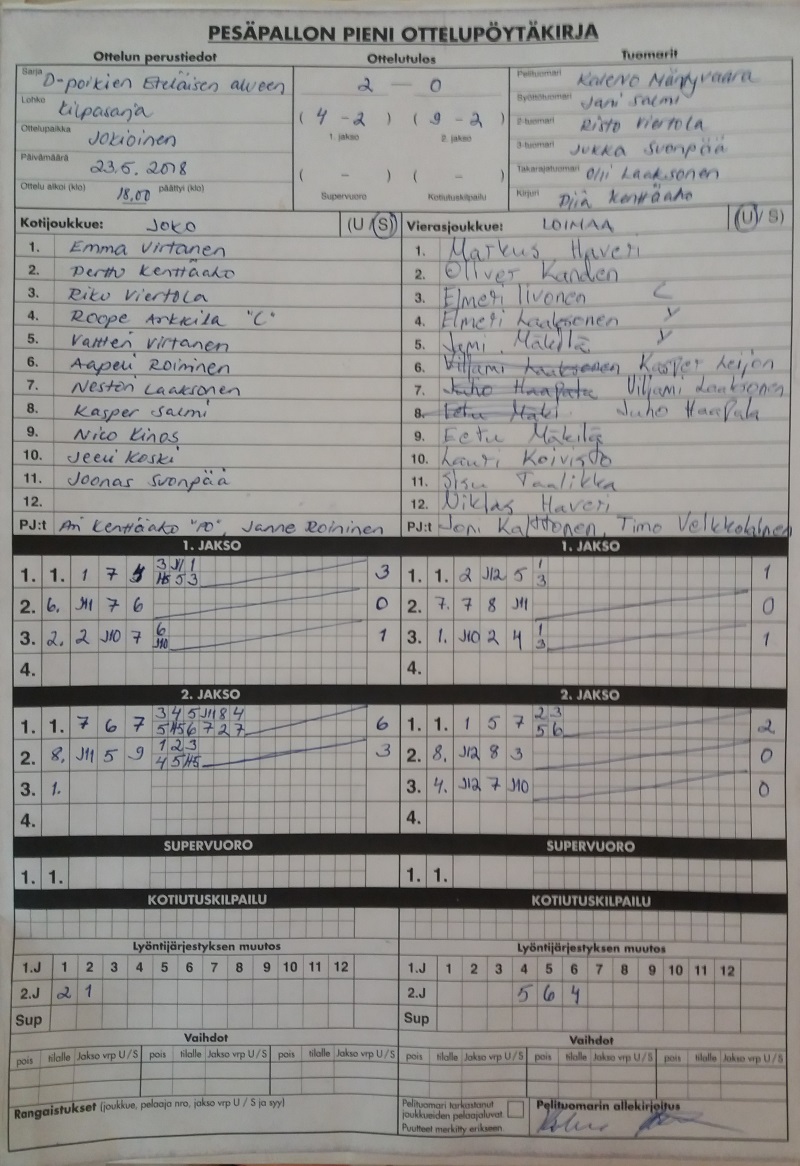 PESÄPALLON PIENI OTTELUPÖYTÄKIRJA
Ottelun perustiedot
Ottelutulos
Tuomarit
Sarja D-poikien Eteläisen alueen
Lohko kilpasarja
Ottelupaikka Jokioinen
Päivämäärä 23.5.2018
Ottelu alkoi (klo) 18.00 päättyi (klo)
2 - 0
( 4 - 2 ) ( 9 - 2 )
1. jakso 2. jakso
( - ) ( - )
Supervuoro Kotiutuskilpailu
Pelituomari Kalervo Mäntyvaara
Syöttötuomari Jani Salmi
2-tuomari Risto Viertola
3-tuomari Jukka Suonpää
Takarajatuomari Olli Laaksonen
Kirjuri Piia Kenttäaho
Kotijoukkue: JoKo (U / S)
1. Emma Virtanen
2. Perttu Kenttäaho
3. Riku Viertola
4. Roope Arkkila "C"
5. Valtteri Virtanen
6. Aapeli Roininen
7. Nestori Laaksonen
8. Kasper Salmi
9. Nico Kinos
10. Jeeli Koski
11. Joonas Suonpää
12.
PJ:t Ari Kenttäaho "PO", Janne Roininen
Vierasjoukkue: LOIMAA (U / S)
1. Markus Haveri
2. Oliver Kanden
3. Elmeri Iivonen C
4. Elmeri Laaksonen Y
5. Jami Mäkilä Y
6. Viljami Laaksonen Kasper Leijon
7. Juho Haapala Viljami Laaksonen
8. Eetu Mäki Juho Haapala
9. Eetu Mäkilä
10. Lauri Koivisto
11. Sisu Taalikka
12. Niklas Haveri
PJ:t Joni Kalttonen, Timo
1. JAKSO
1. 1. 1 7 3 J11 1 3
5 3
2. 6. J11 7 6 0
3. 2. 2 J10 7 6 1
J10
4.
1. JAKSO
1. 1. 2 J12 5 1 1
3
2. 7. 7 8 J11 0
3. 1. J10 2 4 1 1
3
4.
2. JAKSO
1. 1. 7 6 7 3 4 5 J11 8 4 6
5 J15 6 7 2 7
2. 8. J11 5 9 1 2 3 3
4 5 J15
3. 1.
4.
2. JAKSO
1. 1. 1 5 7 2 3 2
5 6
2. 8. J12 8 3 0
3. 4. J12 7 J10 0
4.
SUPERVUORO
1. 1.
SUPERVUORO
1. 1.
KOTIUTUSKILPAILU
KOTIUTUSKILPAILU
Lyöntijärjestyksen muutos
1.J 1 2 3 4 5 6 7 8 9 10 11 12
2.J 2 1
Sup
Lyöntijärjestyksen muutos
1.J 1 2 3 4 5 6 7 8 9 10 11 12
2.J 5 6 4
Sup
Vaihdot
pois tilalle Jakso vrp U / S pois tilalle Jakso vrp U / S pois tilalle Jakso vrp U / S
Vaihdot
pois tilalle Jakso vrp U / S pois tilalle Jakso vrp U / S pois tilalle Jakso vrp U / S
Rangaistukset (joukkue, pelaaja nro, jakso vrp U / S ja syy)
Pelituomari tarkastanut
joukkueiden pelaajaluvat.
Puutteet merkitty erikseen.
Pelituomarin allekirjoitus